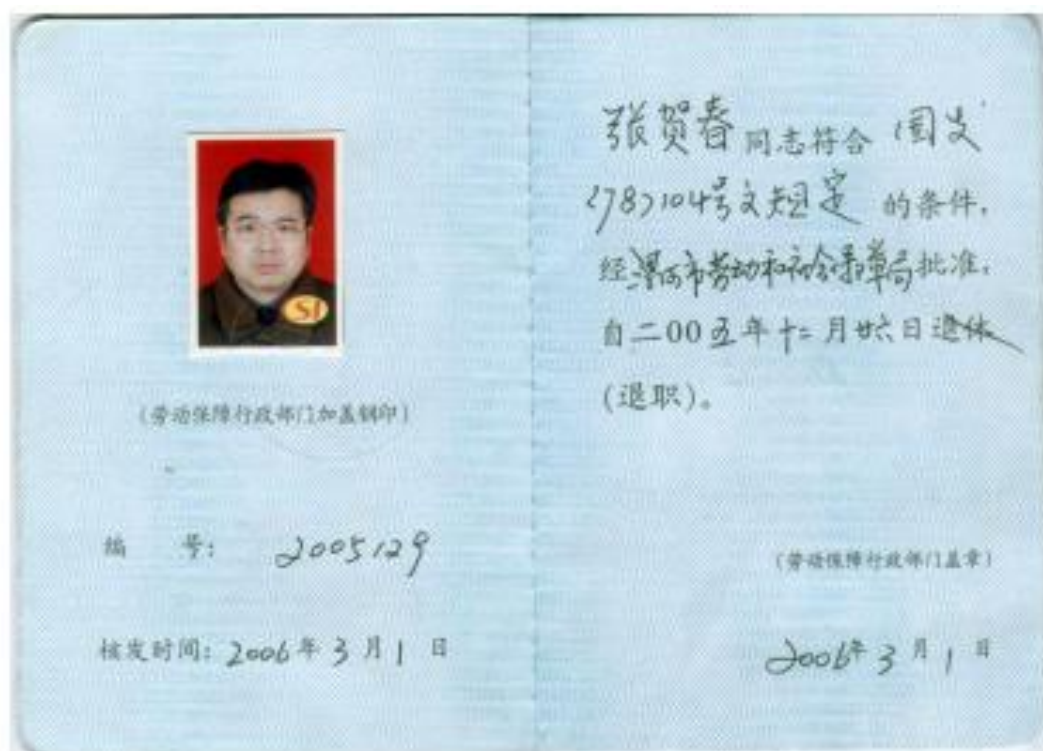 SI
(劳动保障行政部门加盖钢印)
编 号: 2005129
核发时间: 2006年3月1日
张贺春同志符合 国发
〈78〉104号文规定 的条件,
经漯河市劳动和社会保障局批准,
自二00五年十二月廿六日退休
(退职)。
(劳动保障行政部门盖章)
2006年3月1日